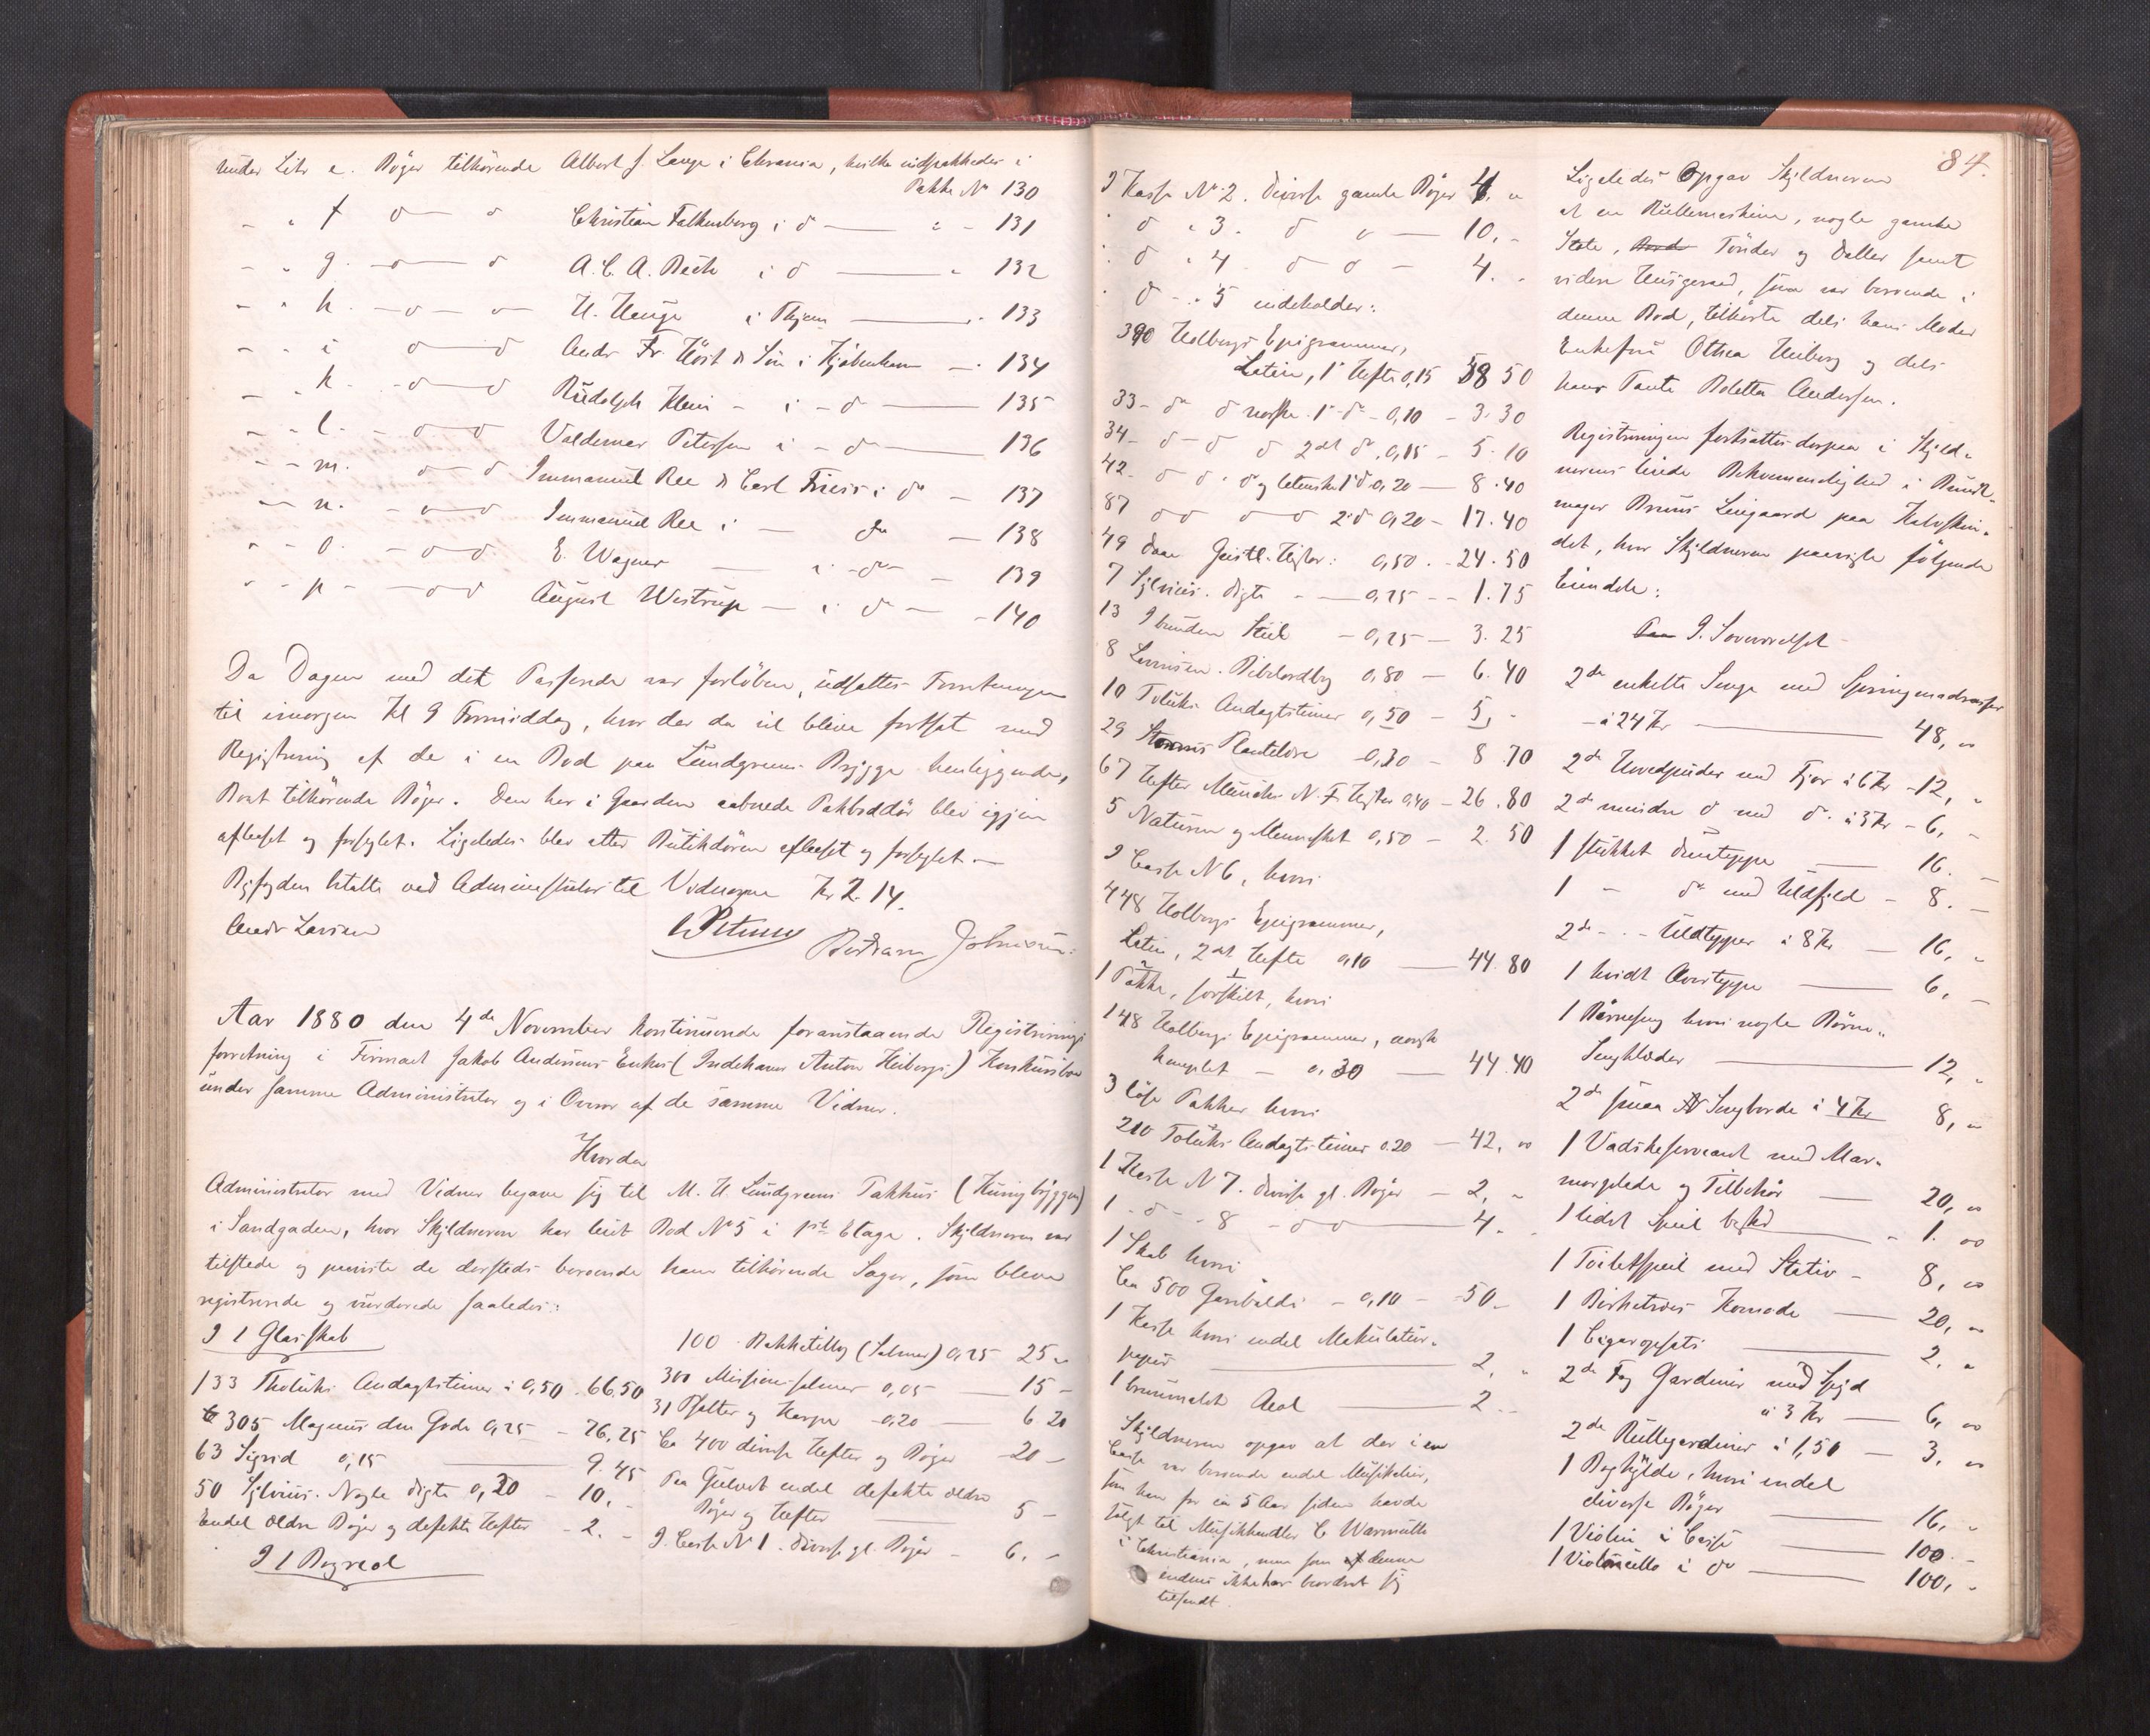 under Litr e. Böger tilhörende Albert J. Lange i Chrania, hvilke indpakkedes i
Pakke No 130
- " f d d Christian Falkenberg i d — " - 131
- " g. d d A. C. A. Bech i d — " 132
- " h. d d H. Hauge i Thjem — " 133
- " i d d Andr. Fr. Höst & Sön i Kjöbenhavn — 134
- " k. d d Rudolph Klein - i - do — 135
- " l. d d Valdemar Petersen i - do — 136
- " m. d d Immanuel Ree & Carl Friess i do — 137
- " n. d d Immanuel Ree i — do — 138
- " o. d d E. Wagner — i - do — 139
- " p - d d August Westrup — i do — 140
Da Dagen med det Passerede var forlöben, udsattes Forretningen
til imorgen Kl 9 Formiddag, hvor der da vil blive fortsat med
Registrering af de i en Bod paa Lundgreens Brygge henliggende,
Boet tilhörende Böger. Den her i Gaarden aabnede Pakboddör blev igjen
aflaaset og forseglet. Ligeledes blev atter Butikdören aflaaset og forseglet. —
Byfogden betalte ved Administrator til Vidnerne Kr 2.14.
Andr Larsen Bertram Johnsen
Aar 1880 den 4de November kontinueredes foranstaaende Registrerings
forretning i Firmaet Jakob Andersens Enkes (Indehaver Anton Heibergs) Konkursbo
under samme Administrator og i Overvær af de samme Vidner.
Hvorda
Administrator med Vidner begave sig til M. H. Lundgreens Pakhus (Hunigbryggen)
i Sandgaden, hvor Skyldneren har leiet Bod No 5 i 1ste Etage. Skyldneren var
tilstede og paaviste de dersteds beroende ham tilhörende Sager, som bleve
registrerede og vurderede saaledes:
I 1 Glasskab
133 Tholuks Andagtstimer à 0,50 . 66,50
305 Magnus den Gode 0,25 — 76,25
63 Sigrid 0,15 — 9.45
50 Sylvius. Nogle Digte 0,20 — 10, -
Endel ældre Böger og defekte Hefter - 2. -
I 1 Bogreol
100 Bakketilbg (Salmer) 0,25 25 "
300 Missions-salmer 0,05 — 15 -
31 Psalter og Harpe 0,20 — 6 20
Ca 400 diverse Hefter og Böger 20 -
Paa Gulvet endel defekte ældre
Böger og Hefter — 5 -
I Casse N 1. diverse gl. Böger - 6. -
84.
I Kasse No 2. diverse gamle Böger 4, "
d " 3. d d — 10. -
d " 4 d d — 4. -
d - " 5 indeholder:
390 Holbergs Epigrammer,
Latin, 1e Hefte 0,15 58 50
33 - do d norske 1e do - 0,10 - 3. 30
34 - d d d 2det do 0,15 - 5. 10
42 - d d d og latinske 1e d 0,20 — 8. 40
87 d d d d 2e d 0,20 - 17. 40
49 Daae Geistl. Histor: 0,50 . - 24. 50
7 Sylvius. Digte - — 0,25 - - 1. 75
13 I bunden Stiil — 0,25 — 3. 25
8 0,80 — 6. 40
10 Toluks Andagtstimer 0,50 - 5, -
29 Plantelære 0,30 - 8 70
67 Hefter Munchs N. F. Histor 0,40 - 26. 80
5 Naturen og Mennesket 0,50 - 2. 50
I Casse N 6, hvori
448 Holbergs Epigrammer,
Latin, 2det Hefte 0,10 — 44. 80
1 Pakke, særskilt, hvori
148 Holbergs Epigrammer, norsk
komplet — 0,30 — 44. 40
3 löse Pakker hvori
210 Toluks Andagtstimer 0.20 — 42, "
1 Kasse N 7. diverse gl. Böger — 2, "
1 - d - - 8 - d d — 4. -
1 Skab hvori
Ca 500 Garibaldi — 0,10 — 50 -
1 Kasse hvori endel Makulatur-
papir — 2, "
1 brunmalet Reol — 2 -
Skyldneren opgav at der i en
Casse var beroende endel Musikalier,
som han for ca 5 Aar siden havde
solgt til Musikhandler C Warmuth
i Christiania, men som af denne
endnu ikke har beordret sig
tilsendt.
Ligeledes Opgav Skyldneren
at en Rullemaskine, nogle gamle
Stole, Tönder og Baller samt
videre Husgeraad, som var beroende i
denne Bod, tilhörte dels hans Moder
Enkefru Othea Heiberg og dels
hans Tante Boletta Andersen.
Registreringen fortsattes derpaa i Skyld-
nerens leiede Bekvemmelighed i Bundt-
mager Bruuns Leiegaard paa Kalvskin-
det, hvor Skyldneren paaviste fölgende
Eiendele:
I Soveværelset
2de enkelte Senge med Springmadrasser
- à 24 Kr — 48, "
2de Hovedpuder med Fjær à 6 Kr - 12, "
2de mindre d med do à 3 Kr - 6, -
1 stukket Duunteppe — 16. -
1 - do med Uldfyld — 8. -
2de - - Uldtepper à 8 Kr — 16, "
1 hvidt Overteppe — 6, -
1 Börneseng hvori nogle Börne-
Sengklæder — 12, "
2de smaa Sengborde à 4 Kr 8, "
1 Vadskeservant med Mar-
morplade og Tilbehör — 20, "
1 lidet Speil — 1. "
1 Toiletspeil med Stativ — 8, "
1 Birketræs Komode — 20, "
1 Cigaropsats — 2. "
2de Fag Gardiner med
à 3 Kr — 6, "
2de Rullegardiner à 1,50 — 3, "
1 Boghylde, hvori endel
diverse Böger — 16, "
1 Violin i Casse — 100. -
1 Violoncello i do — 100, -